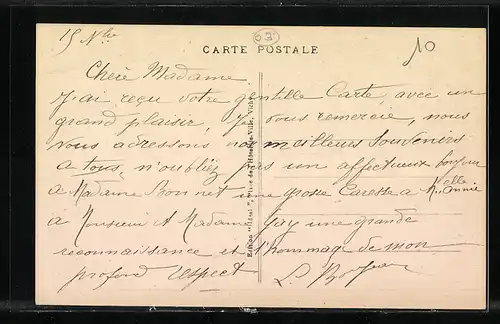 15 Nbre
03
CARTE POSTALE
10
Chère Madame
J'ai reçu votre gentille Carte avec un
grand plaisir, je vous remercie, nous
vous adressons nos meilleurs Souvenirs
a tous, n'oubliez pas un affectueux bonjour
a Madame Bonnet une grosse Caresse a Melle Annie
a Monsieur et Madame Gay une grande
reconnaissance et l'hommage de mon
profond respect
Edition "Idéal", Place de l'Hôtel-de-Ville, Vichy